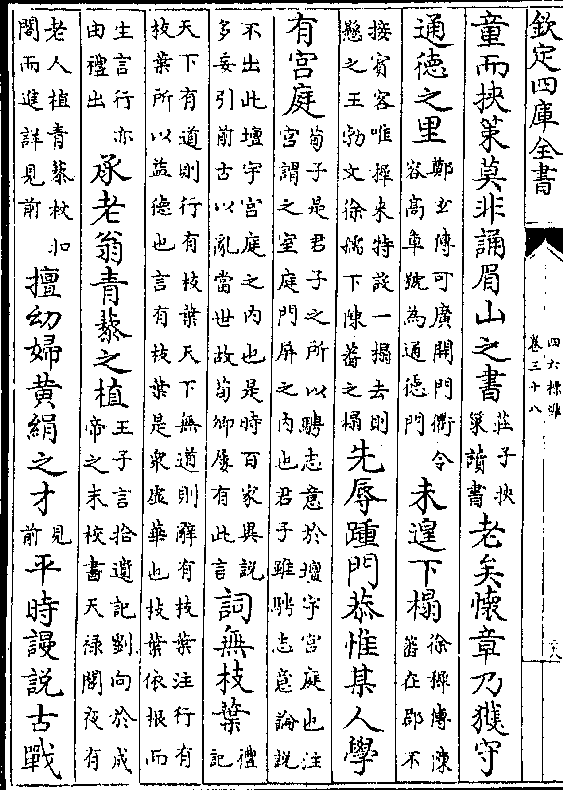 欽定四庫全書
四六標準
卷三十八
童而挾策莫非誦眉山之書莊子挾筴讀書老矣懷章乃獲守
通德之里鄭玄傳可廣開門衢令容髙車號為通德門未遑下榻徐穉傳陳蕃在郡不
接賔客唯穉來特設一榻去則懸之王勃文徐孺下陳蕃之榻先辱踵門恭惟某人學
有宮庭荀子是君子之所以騁志意於壇宇宮庭也注宮謂之室庭門屏之内也君子雖騁志意論說
不出此壇宇宮庭之内也是時百家異說多妄引前古以亂當世故荀卿屢有此言詞無枝葉禮記
天下有道則行有枝葉天下無道則辭有枝葉注行有枝葉所以益德也言有枝葉是衆虛華也枝葉依根而
生言行亦由禮出承老翁青藜之植王子言拾遺記劉向於成帝之末校書天禄閣夜有
老人植青藜杖扣閣而進詳見前擅幼婦黄絹之才見前平時謾説古戰